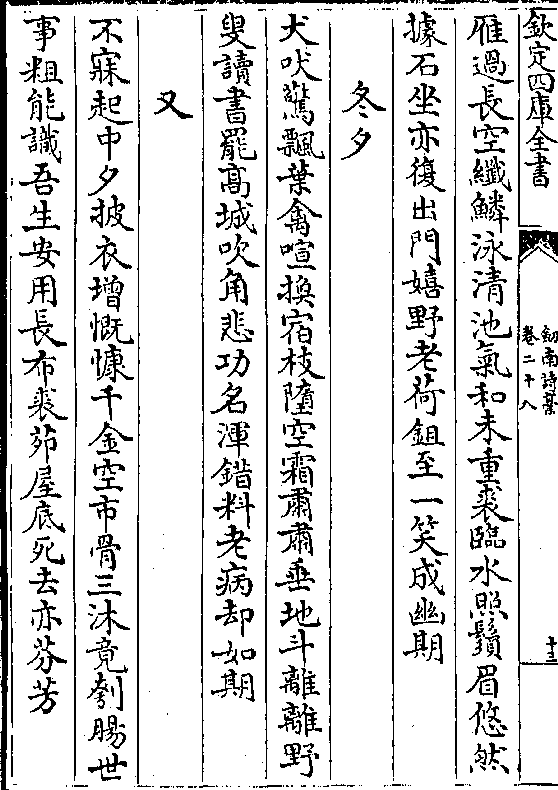 欽定四庫全書
劒南詩槀
卷二十八
十三
雁過長空纖鱗泳清池氣和未重裘臨水照鬚眉悠然
據石坐亦復出門嬉野老荷鉏至一笑成幽期
冬夕
犬吠驚飄葉禽喧換宿枝墮空霜肅肅垂地斗離離野
叟讀書罷高城吹角悲功名渾錯料老病却如期
又
不寐起中夕披衣增慨慷千金空市骨三沐竟刳腸世
事粗能識吾生安用長布裘茆屋底死去亦芬芳